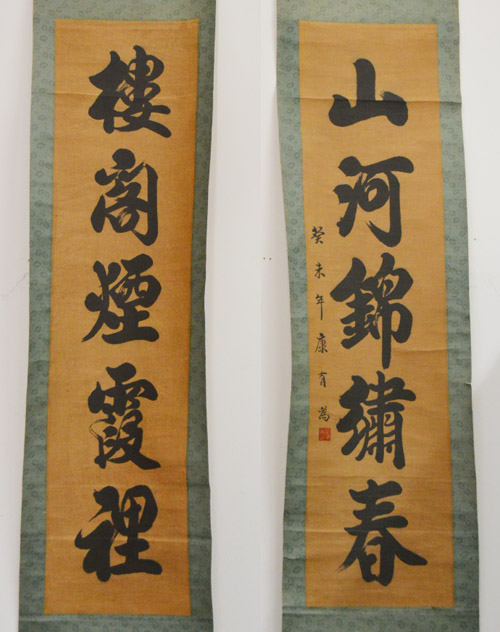 山河錦繡春
癸未年康有為
樓閣煙霞裡